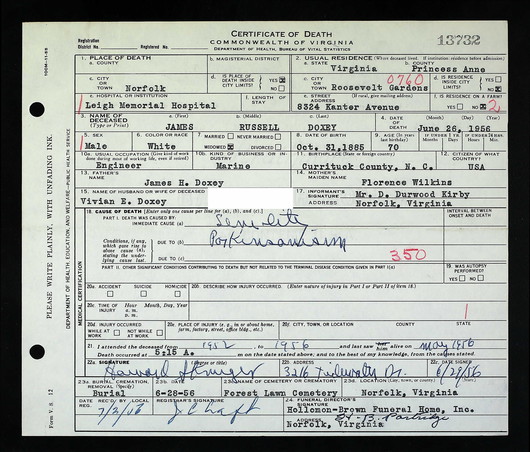 CERTIFICATE OF DEATH
COMMONWEALTH OF VIRGINIA
DEPARTMENT OF HEALTH, BUREAU OF VITAL STATISTICS
13732
Registration District No.
Registered No.
1. PLACE OF DEATH
a. COUNTY
b. MAGISTERIAL DISTRICT
2. USUAL RESIDENCE (Where deceased lived. If institution: residence before admission)
a. STATE Virginia
b. COUNTY Princess Anne
c. CITY OR TOWN Norfolk
d. IS PLACE OF DEATH INSIDE CITY LIMITS? YES NO
0760
c. CITY OR TOWN Roosevelt Gardens
d. IS RESIDENCE INSIDE CITY LIMITS? YES NO
e. HOSPITAL OR INSTITUTION
Leigh Memorial Hospital
f. LENGTH OF STAY
e. STREET ADDRESS
8324 Kanter Avenue
f. IS RESIDENCE ON A FARM? YES NO
3. NAME OF DECEASED (Type or Print)
a. (First) JAMES
b. (Middle) RUSSELL
c. (Last) DOXEY
4. DATE OF DEATH (Month) (Day) (Year)
June 26, 1956
5. SEX Male
6. COLOR OR RACE White
7. MARRIED NEVER MARRIED WIDOWED DIVORCED
8. DATE OF BIRTH Oct. 31, 1885
9. AGE 70
10a. USUAL OCCUPATION Engineer
10b. KIND OF BUSINESS OR INDUSTRY Marine
11. BIRTHPLACE Currituck County, N. C.
12. CITIZEN OF WHAT COUNTRY? USA
13. FATHER'S NAME
James H. Doxey
14. MOTHER'S MAIDEN NAME
Florence Wilkins
15. NAME OF HUSBAND OR WIFE OF DECEASED
Vivian E. Doxey
17. INFORMANT'S SIGNATURE Mr. D. Durwood Kirby
Norfolk, Virginia
18. CAUSE OF DEATH [Enter only one cause per line for (a), (b), and (c).]
PART I. DEATH WAS CAUSED BY:
IMMEDIATE CAUSE (a) Senility
INTERVAL BETWEEN ONSET AND DEATH
Conditions, if any, which gave rise to above cause (a), stating the underlying cause last
DUE TO (b) Parkinsonism
DUE TO (c)
350
PART II. OTHER SIGNIFICANT CONDITIONS CONTRIBUTING TO DEATH BUT NOT RELATED TO THE TERMINAL DISEASE CONDITION GIVEN IN PART I(a)
19. WAS AUTOPSY PERFORMED? YES NO
20a. ACCIDENT SUICIDE HOMICIDE
20b. DESCRIBE HOW INJURY OCCURRED. (Enter nature of injury in Part I or Part II of item 18.)
20c. TIME OF INJURY Hour Month, Day, Year a. m. p. m.
20d. INJURY OCCURRED WHILE AT WORK NOT WHILE AT WORK
20e. PLACE OF INJURY
20f. CITY, TOWN, OR LOCATION COUNTY STATE
21. I attended the deceased from 1952 to 1956 and last saw alive on May 1956
Death occurred at 5:15 A. m on the date stated above; and to the best of my knowledge, from the causes stated.
22a. SIGNATURE (Degree or title)
22b. ADDRESS
22c. DATE SIGNED
6/29/56
23a. BURIAL, CREMATION, REMOVAL (Specify)
Burial
23b. DATE 6-28-56
23c. NAME OF CEMETERY OR CREMATORY
Forest Lawn Cemetery
23d. LOCATION (City, town, or county) (State)
Norfolk, Virginia
DATE REC. BY LOCAL REG.
REGISTRAR'S SIGNATURE
24. FUNERAL DIRECTOR'S SIGNATURE
Hollomon-Brown Funeral Home, Inc.
Norfolk, Virginia
PLEASE WRITE PLAINLY, WITH UNFADING INK.
DEPARTMENT OF HEALTH, EDUCATION, AND WELFARE—PUBLIC HEALTH SERVICE
MEDICAL CERTIFICATION
Form V. S. 12